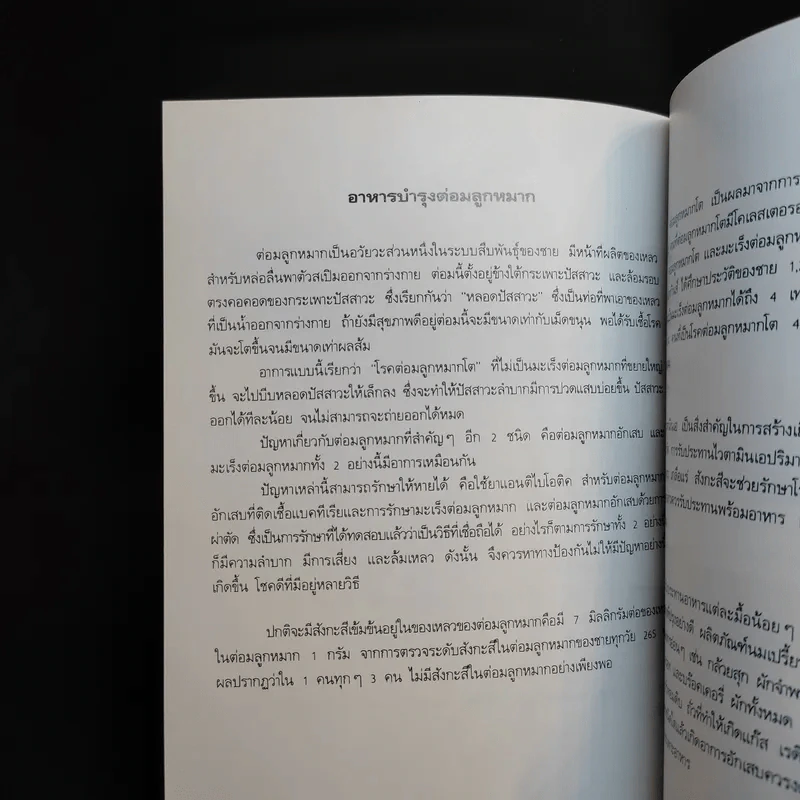 อาหารบำรุงต่อมลูกหมาก
ต่อมลูกหมากเป็นอวัยวะส่วนหนึ่งในระบบสืบพันธุ์ของชาย มีหน้าที่ผลิตของเหลว
สำหรับหล่อลื่นพาตัวสเปิมออกจากร่างกาย ต่อมนี้ตั้งอยู่ข้างใต้กระเพาะปัสสาวะ และล้อมรอบ
ตรงคอคอดของกระเพาะปัสสาวะ ซึ่งเรียกกันว่า "หลอดปัสสาวะ" ซึ่งเป็นท่อที่พาเอาของเหลว
ที่เป็นน้ำออกจากร่างกาย ถ้ายังมีสุขภาพดีอยู่ต่อมนี้จะมีขนาดเท่ากับเม็ดขนุน พอได้รับเชื้อโรค
มันจะโตขึ้นจนมีขนาดเท่าผลส้ม
อาการแบบนี้เรียกว่า "โรคต่อมลูกหมากโต" ที่ไม่เป็นมะเร็งต่อมลูกหมากที่ขยายใหญ่
ขึ้น จะไปบีบหลอดปัสสาวะให้เล็กลง ซึ่งจะทำให้ปัสสาวะลำบากมีการปวดแสบบ่อยขึ้น ปัสสาวะ
ออกได้ทีละน้อย จนไม่สามารถจะถ่ายออกได้หมด
ปัญหาเกี่ยวกับต่อมลูกหมากที่สำคัญๆ อีก 2 ชนิด คือต่อมลูกหมากอักเสบ และ
มะเร็งต่อมลูกหมากทั้ง 2 อย่างนี้มีอาการเหมือนกัน
ปัญหาเหล่านี้สามารถรักษาให้หายได้ คือใช้ยาแอนติไบโอติค สำหรับต่อมลูกหมาก
อักเสบที่ติดเชื้อแบคทีเรียและการรักษามะเร็งต่อมลูกหมาก และต่อมลูกหมากอักเสบด้วยการ
ผ่าตัด ซึ่งเป็นการรักษาที่ได้ทดสอบแล้วว่าเป็นวิธีที่เชื่อถือได้ อย่างไรก็ตามการรักษาทั้ง 2 อย่างนี้
ก็มีความลำบาก มีการเสี่ยง และล้มเหลว ดังนั้น จึงควรหาทางป้องกันไม่ให้มีปัญหาอย่างนี้
เกิดขึ้น โชคดีที่มีอยู่หลายวิธี
ปกติจะมีสังกะสีเข้มข้นอยู่ในของเหลวของต่อมลูกหมากคือมี 7 มิลลิกรัมต่อของเหลว
ในต่อมลูกหมาก 1 กรัม จากการตรวจระดับสังกะสีในต่อมลูกหมากของชายทุกวัย 265
ผลปรากฏว่าใน 1 คนทุกๆ 3 คน ไม่มีสังกะสีในต่อมลูกหมากอย่างเพียงพอ
ลูกหมากโต เป็นผลมาจากการ
ลูกหมากโตมีโคเลสเตอรอ
และมะเร็งต่อมลูกห
ได้ศึกษาประวัติของชาย 1,
มะเร็งต่อมลูกหมากได้ถึง 4 เท่
คนที่เป็นโรคต่อมลูกหมากโต 4
เป็นสิ่งสำคัญในการสร้าง
การรับประทานไวตามินเอปริมา
สังกะสีจะช่วยรักษา
รับประทานพร้อมอาหาร
ประทานอาหารแต่ละมื้อน้อยๆ
อย่างดี ผลิตภัณฑ์นมเปรี้ย
เช่น กล้วยสุก ผัก
และบร็อคเคอรี่ ผักทั้งหมด
ถั่วที่ทำให้เกิดแก๊ส
แล้วเกิดอาการอักเสบควร